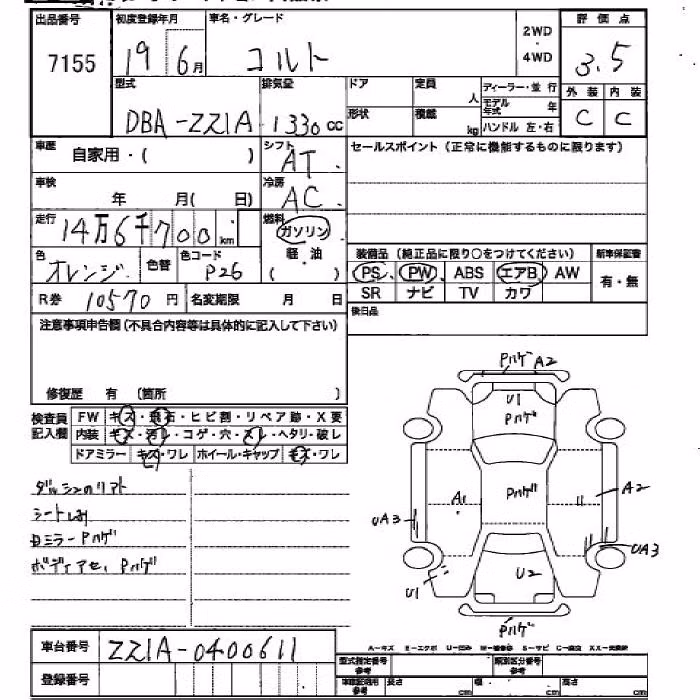 出品番号 初度登録年月 車名・グレード 2WD・4WD 評価点
7155 19 6月 コルト 3.5
型式 排気量 ドア 定員 人 ディーラー・並行 外装 内装
DBA-ZZ1A 1330cc 形状 積載 kg モデル年式 年 ハンドル 左・右 C C
車歴 自家用・( ) シフト AT セールスポイント(正常に機能するものに限ります)
車検 年 月( 日) 冷房 AC
走行 14万6千700km 燃料 ガソリン
軽・油
( )
色 オレンジ 色替 色コード P26
装備品(純正品に限り○をつけてください) 新車保証書
PS PW ABS エアB AW 有・無
SR ナビ TV カワ
R券 10570円 名変期限 月 日
後日品
注意事項申告欄(不具合内容等は具体的に記入して下さい)
修復歴 有 (箇所 )
検査員記入欄 FW キズ・飛石・ヒビ割・リペア跡・X要
内装 キズ・汚レ・コゲ・穴・スレ・ヘタリ・破レ
ドアミラー キズ・ワレ ホイール・キャップ キズ・ワレ
シートしみ
ミラーPハゲ
Pハゲ
Pハゲ A2
U1
Pハゲ
A1
Pハゲ
A2
UA3
UA3
U1
U2
Pハゲ
A-キズ E-エクボ U-凹み W-補修跡 S-サビ C-腐食 XX-交換済
車台番号 ZZ1A-0400611
登録番号
型式指定番号 参考 類別区分番号 参考
参考 長さ cm 幅 cm 高さ cm